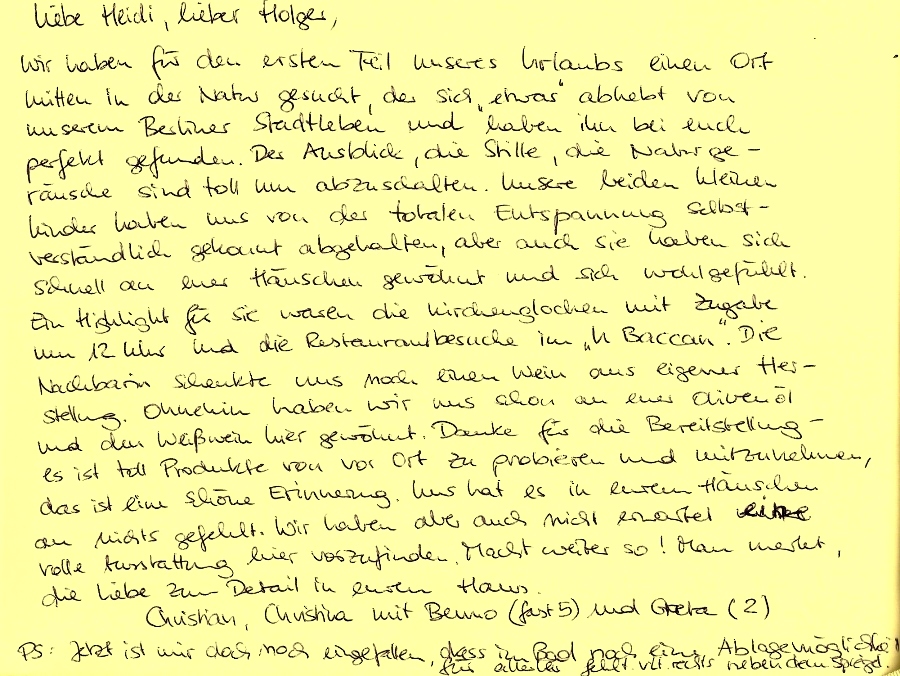 Liebe Heidi, lieber Holger,
Wir haben für den ersten Teil unseres Urlaubs einen Ort
mitten in der Natur gesucht, der sich „etwas" abhebt von
unserem Berliner Stadtleben und haben ihn bei euch
perfekt gefunden. Der Ausblick, die Stille, die Naturge-
räusche sind toll um abzuschalten. Unsere beiden kleinen
Kinder haben uns von der totalen Entspannung selbst-
verständlich gekonnt abgehalten, aber auch sie haben sich
schnell an euer Häuschen gewöhnt und sich wohlgefühlt.
Ein Highlight für sie waren die Kirchenglocken mit Zugabe
um 12 Uhr und die Restaurantbesuche im „U Baccan". Die
Nachbarin schenkte uns noch einen Wein aus eigener Her-
stellung. Ohnehin haben wir uns schon an euer Olivenöl
und den Weißwein hier gewöhnt. Danke für die Bereitstellung -
es ist toll Produkte von vor Ort zu probieren und mitzunehmen,
das ist eine schöne Erinnerung. Uns hat es in eurem Häuschen
an nichts gefehlt. Wir haben aber auch nicht erwartet eine
volle Ausstattung hier vorzufinden. Macht weiter so! Man merkt,
die Liebe zum Detail in eurem Haus.
Christian, Christina mit Benno (fast 5) und Greta (2)
PS: Jetzt ist mir doch noch eingefallen, dass im Bad noch eine Ablagemöglichkeit
für allerlei fehlt vll rechts neben dem Spiegel.